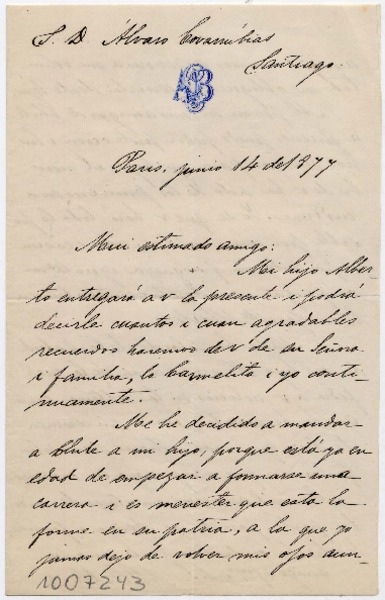 S. D. Álvaro Covarrúbias
Santiago.
París, junio 14 de 1877
Mui estimado amigo:
Mi hijo Alber-
to entregará a V la presente i podrá
decirle cuantos i cuan agradables
recuerdos haremos de V de su Señora
i familia, la Carmelita i yo conti-
nuamente.
Me he decidido a mandar
a Chile a mi hijo, porque está ya en
edad de empezar a formarse una
carrera i es menester que esta la
forme en su patria, a la que yo
jamas dejo de volver mis ojos aun-
1007243